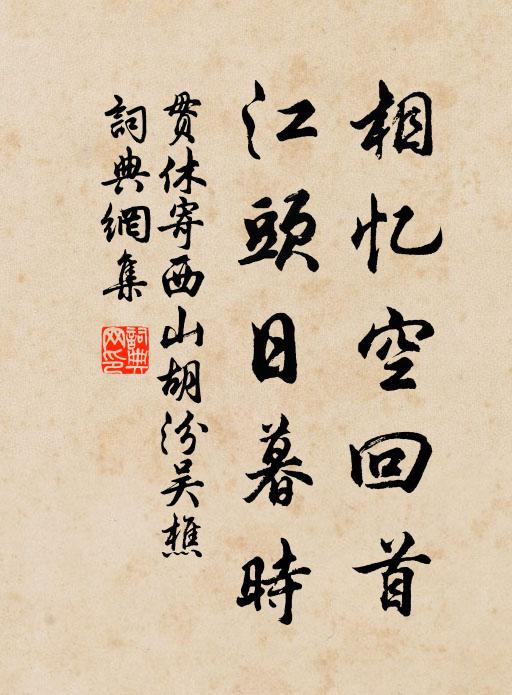 相忆空回首
江頭日暮時
貫休寄西山胡汾吴樵
詞典網集
詞典网印